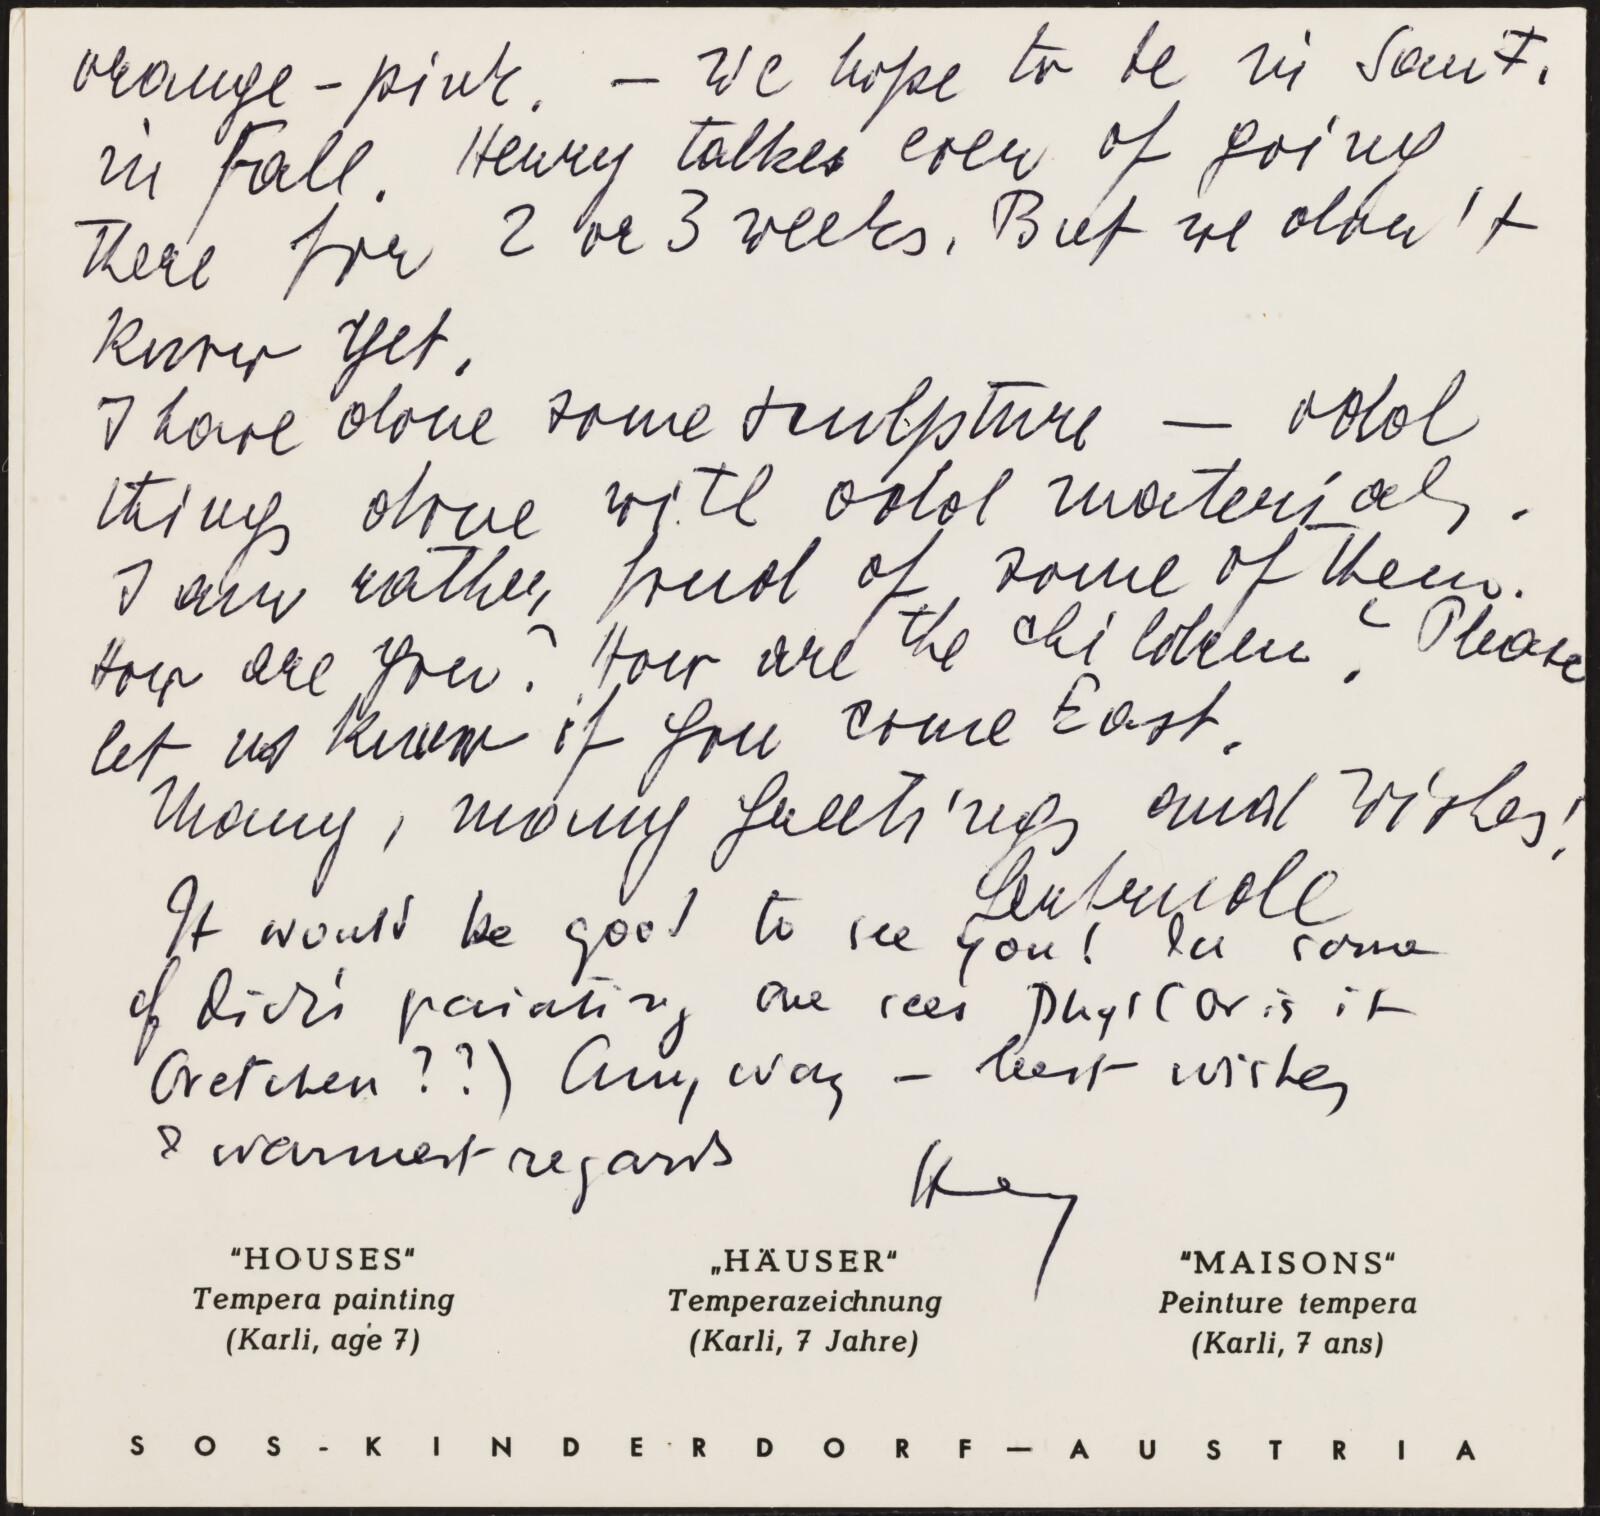 orange-pink. — We hope to be in SanT.
in Fall. Henry talkes even of going
there for 2 or 3 weeks. But we don't
know yet.
I have done some sculpture — odd
things done with odd materials.
I am rather proud of some of them.
How are you? How are the children? Please
let us know if you come East.
Many, many greetings and wishes!
Gertrude
It would be good to see you! In some
of Didi's painting one sees Phyl (or is it
Gretchen??) Anyway – best wishes
& warmest regards
Henry
"HOUSES" „HÄUSER" "MAISONS"
Tempera painting Temperazeichnung Peinture tempera
(Karli, age 7) (Karli, 7 Jahre) (Karli, 7 ans)
SOS-KINDERDORF—AUSTRIA